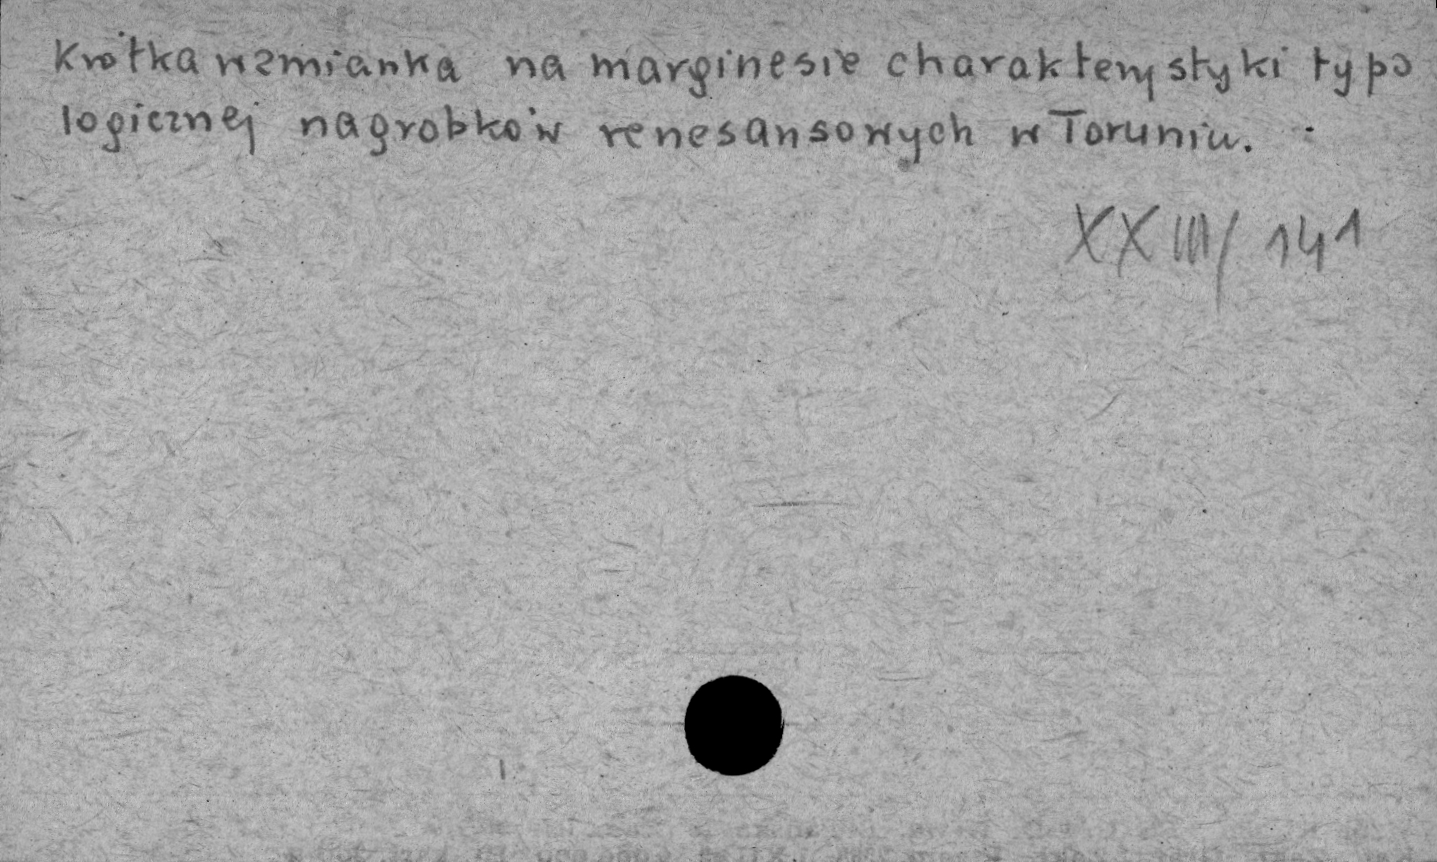 Krótka wzmianka na marginesie charakterystyki typo
logicznej nagrobków renesansowych w Toruniu.
XXIII/141